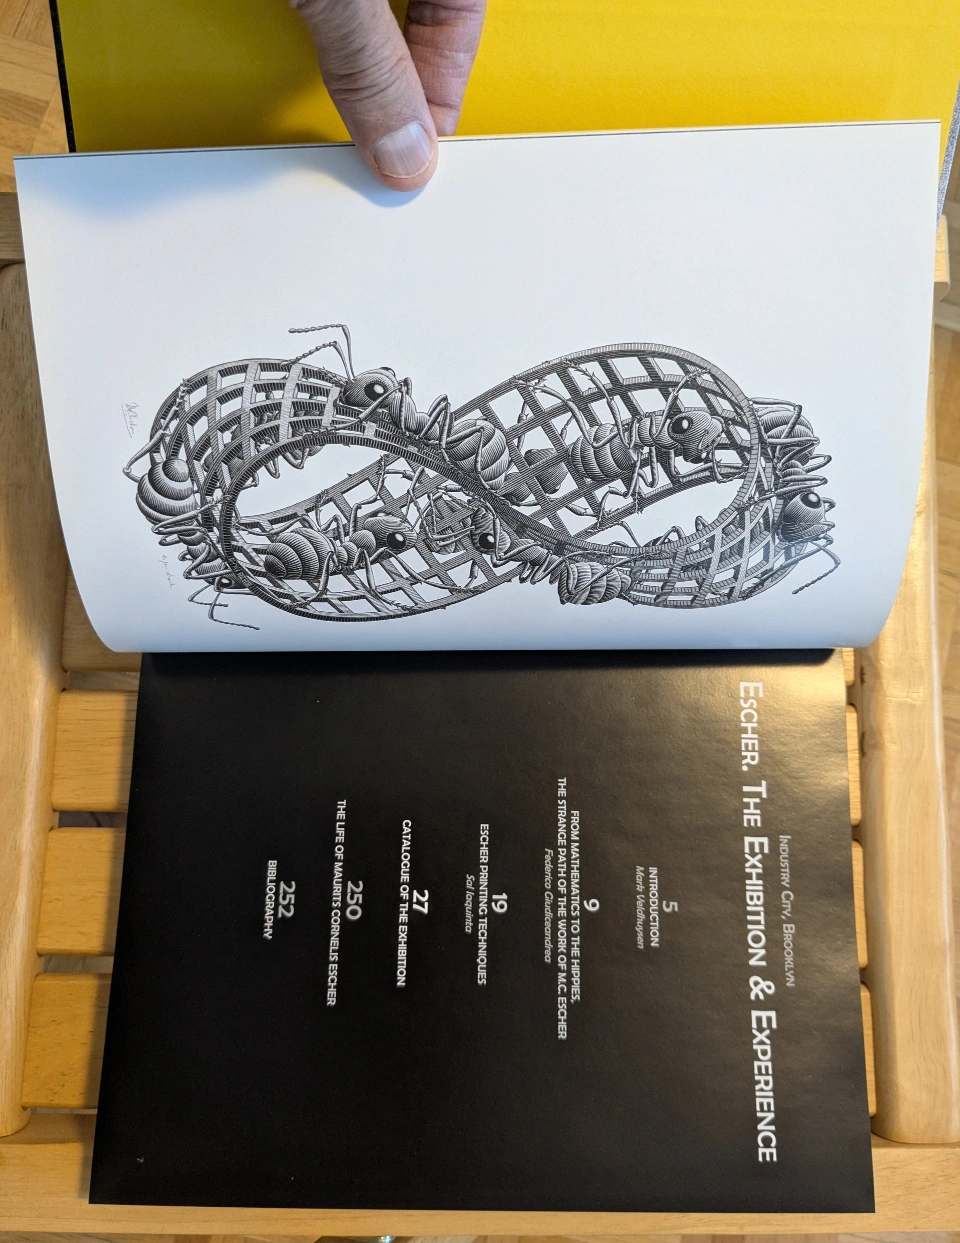 INDUSTRY CITY, BROOKLYN
ESCHER. THE EXHIBITION & EXPERIENCE
5
INTRODUCTION
Mark Veldhuysen
9
FROM MATHEMATICS TO THE HIPPIES,
THE STRANGE PATH OF THE WORK OF M.C. ESCHER
Federico Giudiceandrea
19
ESCHER PRINTING TECHNIQUES
Sal Iaquinta
27
CATALOGUE OF THE EXHIBITION
250
THE LIFE OF MAURITS CORNELIS ESCHER
252
BIBLIOGRAPHY